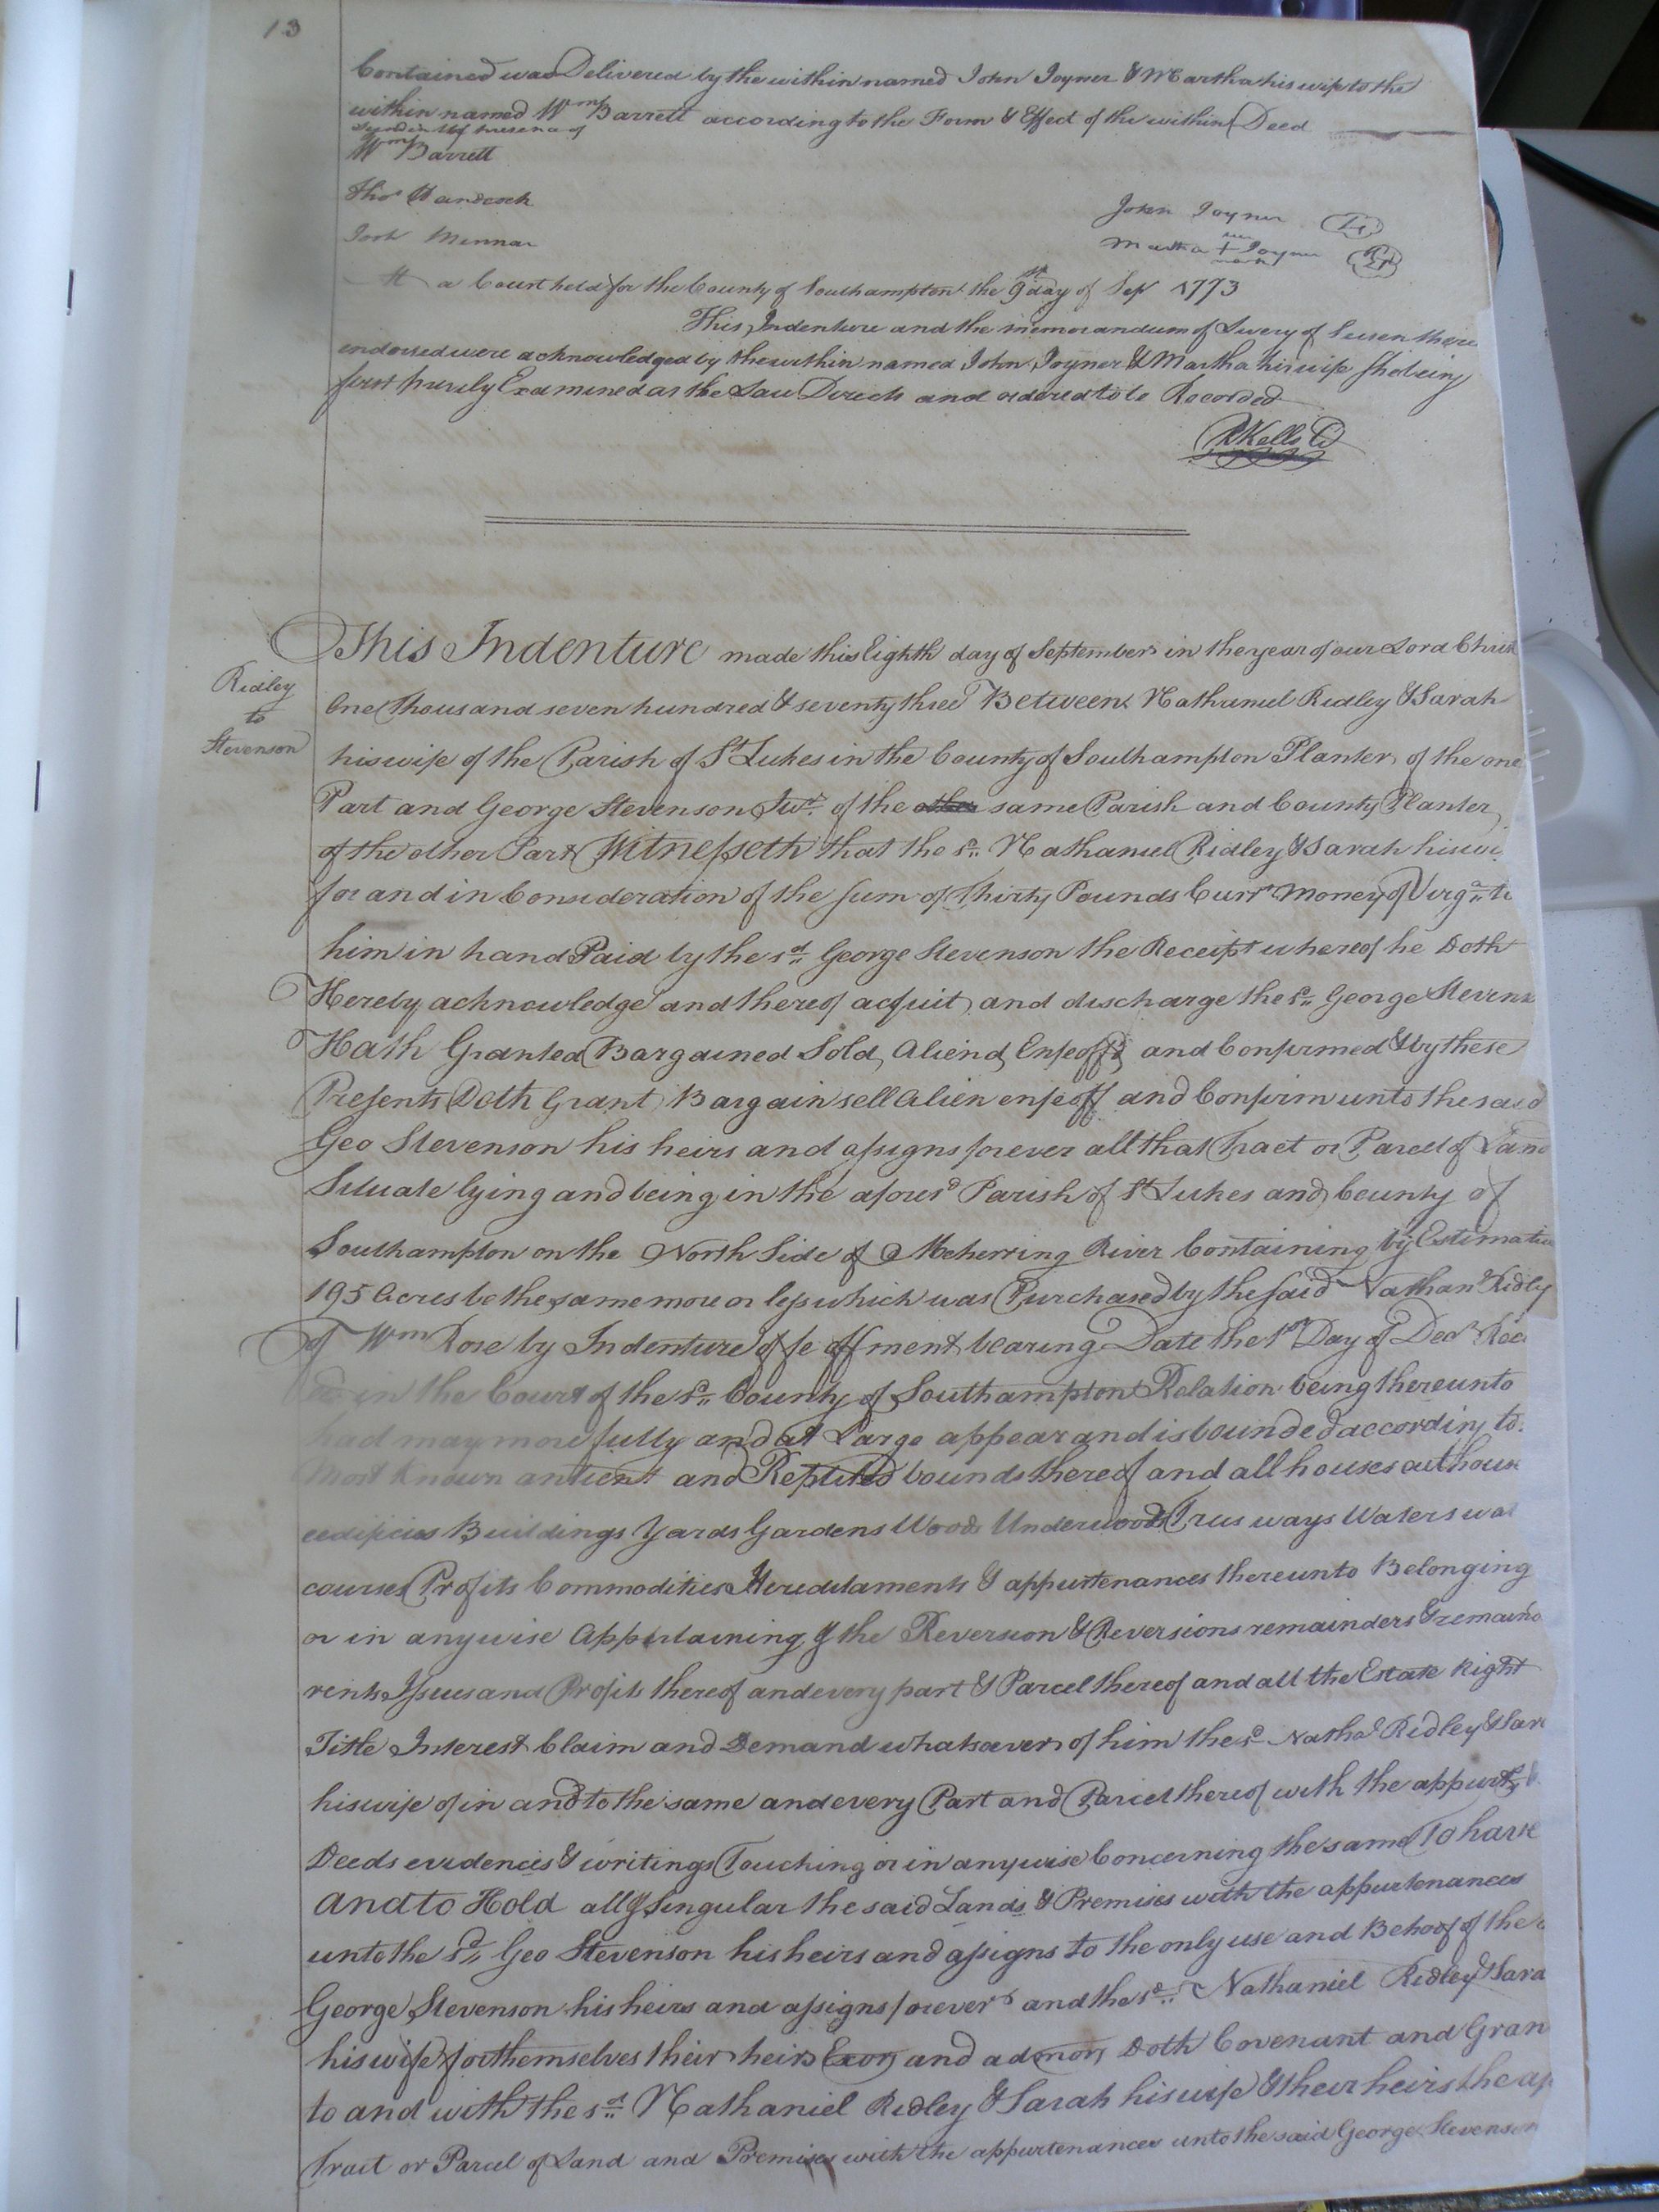 13
Contained was Delivered by the within named John Joyner & Martha his wife to the
within named Wm Barrett according to the Form & Effect of the within Deed
presence of
Wm Barrett
Thos Handcock
John Joyner
Martha + Joyner
mark
At a Court held for the County of Southampton the 9th day of Sep 1773
This Indenture and the memorandum of Livery of Seisen there
endorsed were acknowledged by the within named John Joyner & Martha his wife she being
first privily Examined as the Law Directs and ordered to be Recorded
RKello Cl
Ridley
to
Stevenson
This Indenture made this Eighth day of September in the year of our Lord Christ
One thousand seven hundred & seventy three Between Nathaniel Ridley & Sarah
his wife of the Parish of St Lukes in the County of Southampton Planter of the one
Part and George Stevenson of the other same Parish and County Planter
of the other Part Witnesseth that the sd Nathaniel Ridley & Sarah his wi
for and in Consideration of the sum of Thirty Pounds Currt Money of Virga to
him in hand Paid by the sd George Stevenson the Receipt whereof he Doth
Hereby acknowledge and thereof acquit and discharge the sd George Stevens
Hath Granted Bargained Sold, Aliend, Enfeoff'd and Confirmed & by these
Presents Doth Grant Bargain sell Alien enfeoff and Confirm unto the said
Geo Stevenson his heirs and assigns forever all that Tract or Parcel of Land
Situate lying and being in the afores'd Parish of St Lukes and County of
Southampton on the North Side of Meherring River Containing by Estimation
195 Acres be the same more or less which was Purchased by the said Nathanl Ridley
of Wm Rose by Indenture of feoffment bearing Date the 1st Day of Decr Rec
in the Court of the sd County of Southampton Relation being thereunto
had may more fully and at Large appear and is bounded according to
most known antient and Reputed bounds thereof and all houses outhouse
eedificies Buildings Yards Gardens Woods Underwoods Trees ways Waters wat
courses Profits Commodities Hereditaments & appurtenances thereunto Belonging
or in anywise Appertaining & the Reversion & Reversions remainders & remaind
rents Issues and Profits thereof and every part & Parcel thereof and all the Estate Right
Title Interest Claim and Demand whatsoever of him the sd Nathal Ridley & Sara
his wife of in and to the same and every Part and Parcel thereof with the appurts
Deeds evidences & writings Touching or in anywise Concerning the same To have
and to Hold all & Singular the said Lands & Premises with the appurtenances
unto the sd Geo Stevenson his heirs and assigns to the only use and Behoof of the
George Stevenson his heirs and assigns forever and the sd Nathaniel Ridley & Sara
his wife for themselves their heirs Exors and admors Doth Covenant and Gran
to and with the sd Nathaniel Ridley & Sarah his wife & their heirs the af
Tract or Parcel of Land and Premises with the appurtenances unto the said George Stevenson